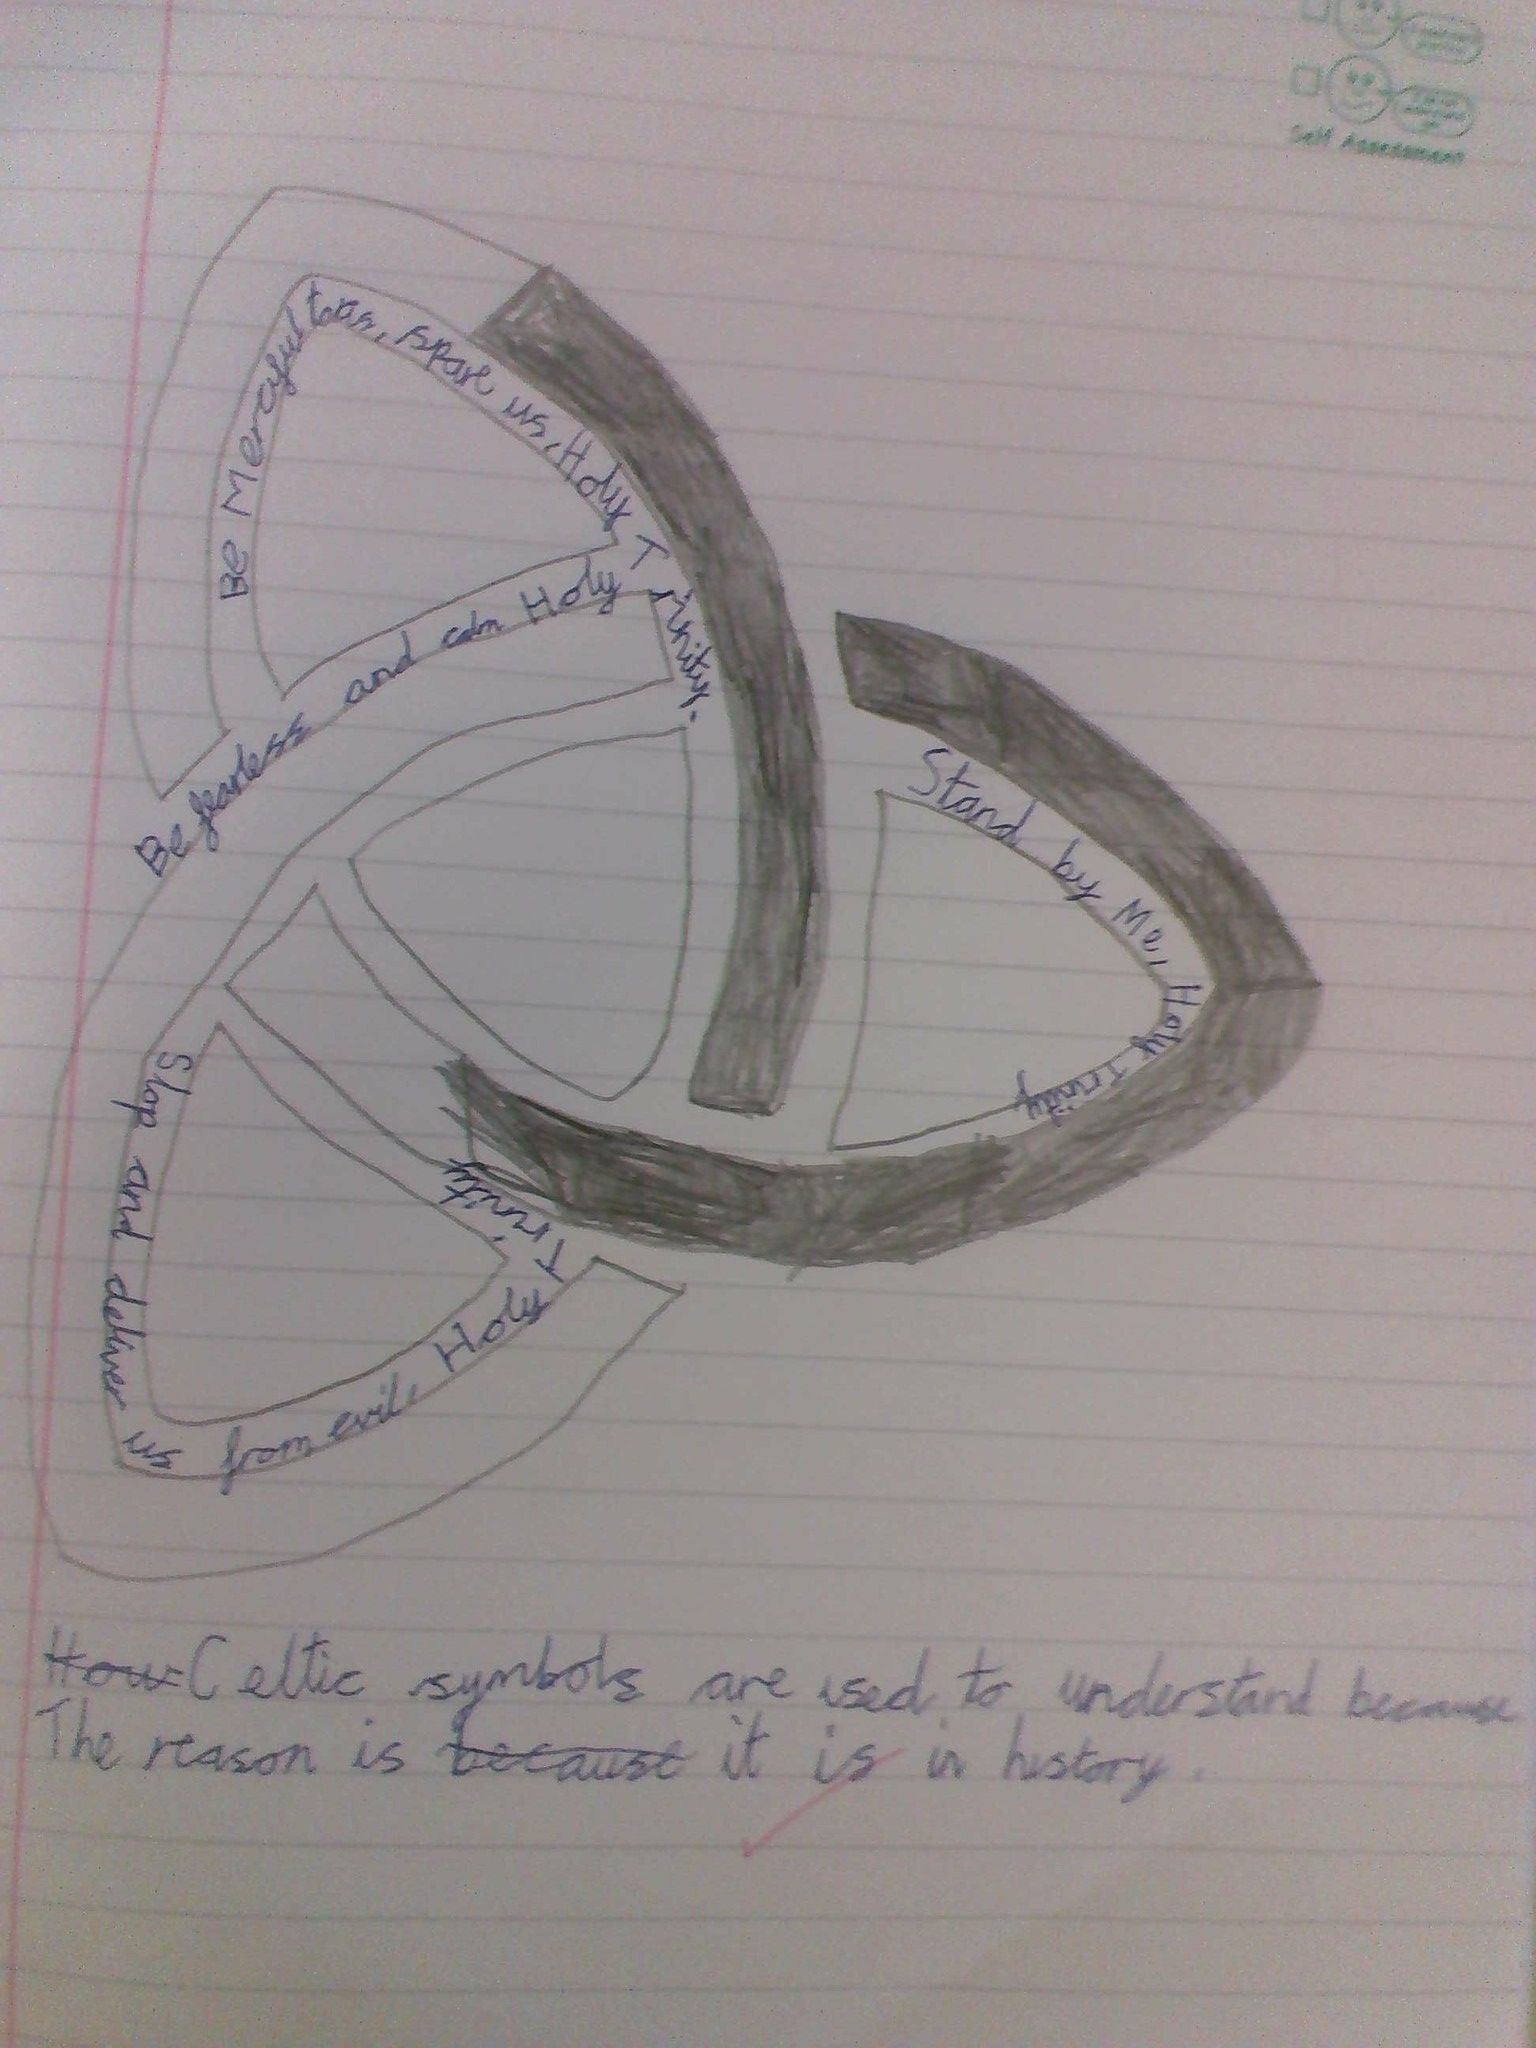 Self Assessment
Be Merciful to us, spare us, Holy Trinity.
Be fearless and calm Holy
Stand by Me, Holy Trinity
Stop and deliver us from evil, Holy Trinity
How Celtic symbols are used to understand because
The reason is because it is in history.